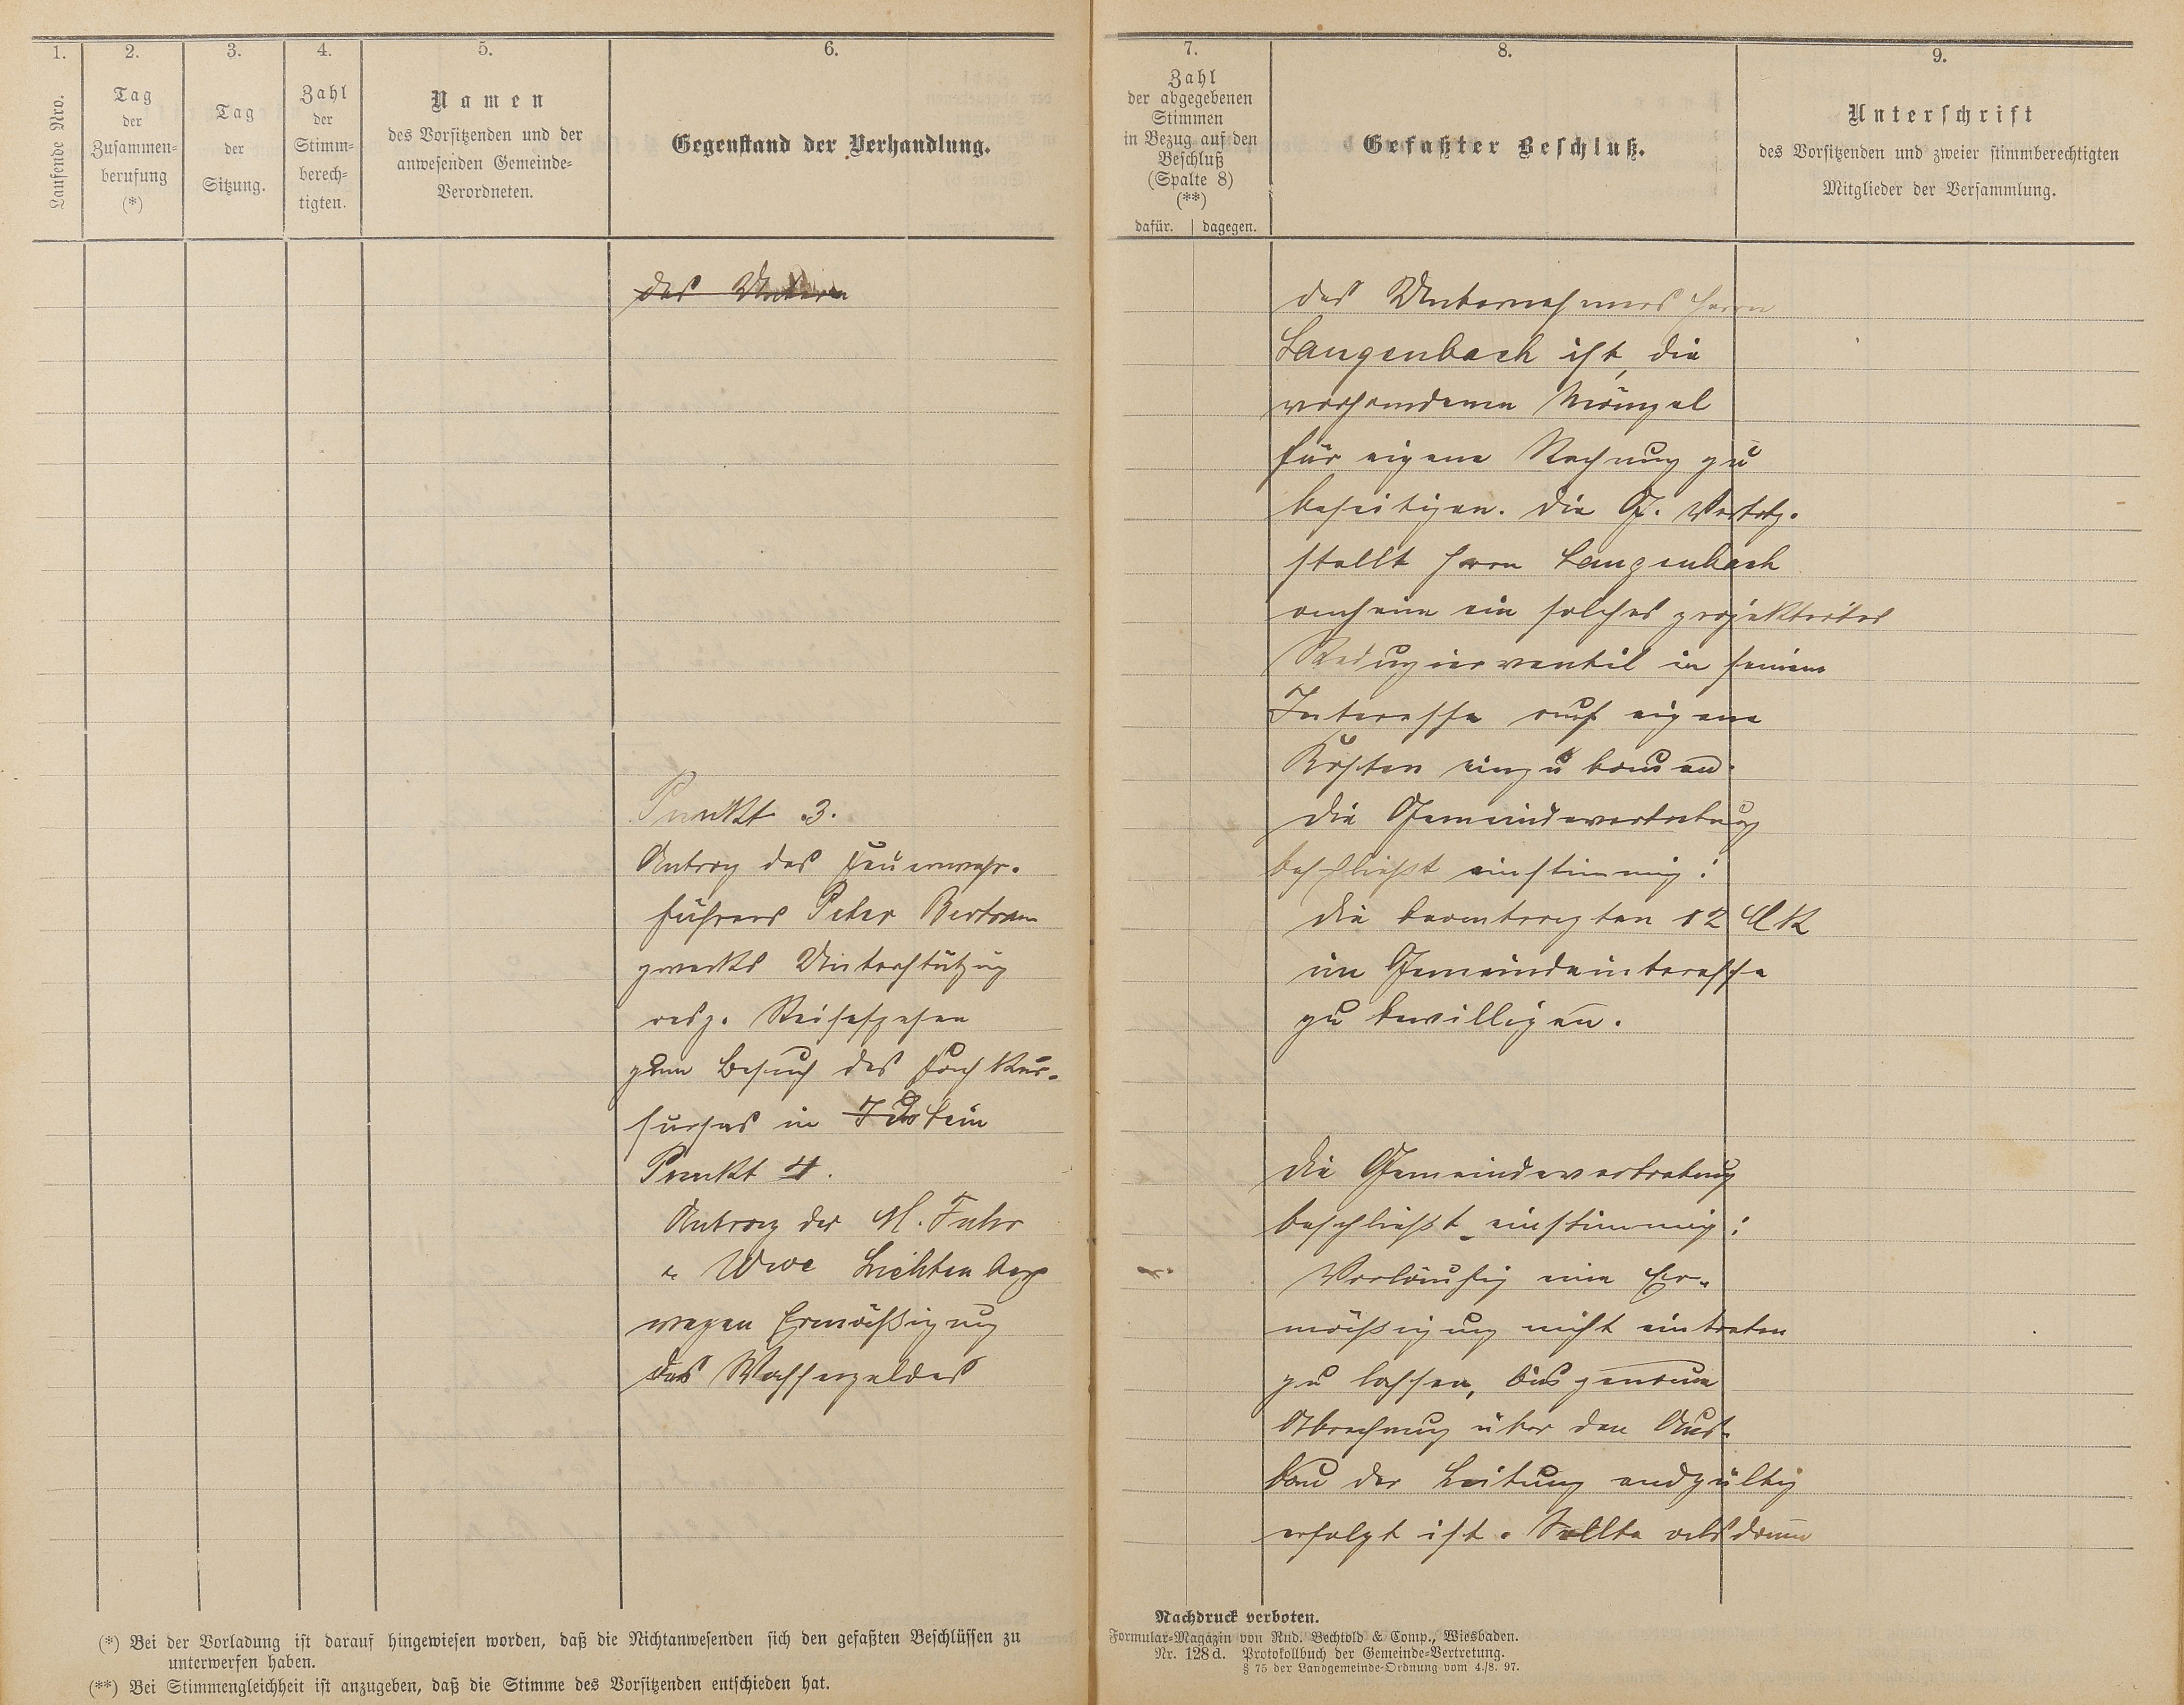 1.
Laufende Nro.
2.
Tag
der
Zusammen-
berufung
(*)
3.
Tag
der
Sitzung.
4.
Zahl
der
Stimm-
berech-
tigten.
5.
Namen
des Vorsitzenden und der
anwesenden Gemeinde-
Verordneten.
6.
Gegenstand der Verhandlung.
des Untern
Punkt 3.
Antrag des Feuerwehr-
führers Peter Bertram
zwecks Unterstützung
resp. Reisespesen
zum Besuch des Fach Kur-
surses in Idstein
Punkt 4.
Antrag der M. Fuhr
u. Wwe Lichtenberg
wegen Ermäßigung
des Wassergeldes
(*) Bei der Vorladung ist darauf hingewiesen worden, daß die Nichtanwesenden sich den gefaßten Beschlüssen zu
unterwerfen haben.
(**) Bei Stimmengleichheit ist anzugeben, daß die Stimme des Vorsitzenden entschieden hat.
7.
Zahl
der abgegebenen
Stimmen
in Bezug auf den
Beschluß
(Spalte 8)
(**)
dafür. dagegen.
8.
Gefaßter Beschluß.
9.
Unterschrift
des Vorsitzenden und zweier stimmberechtigten
Mitglieder der Versammlung.
des Unternehmers Herrn
Langenbach ist, die
vorhandenen Mängel
für eigene Rechnung zu
beseitigen. Die G. Vertrtg.
stellt Herrn Langenbach
anheim ein solches projektirtes
Reduzierventil in seinem
Interesse auf eigene
Kosten einzubauen.
Die Gemeindevertretung
beschließt einstimmig:
Die beantragten 12 Mk
im Gemeindeinteresse
zu bewilligen.
Die Gemeindevertretung
beschließt einstimmig:
Vorläufig eine Er-
mäßigung nicht eintreten
zu lassen, bis genaue
Abrechnung über den Aus-
bau der Leitung endgültig
erfolgt ist. Sollte alsdann
Nachdruck verboten.
Formular-Magazin von Rud. Bechtold & Comp., Wiesbaden.
Nr. 128 d. Protokollbuch der Gemeinde-Vertretung.
§ 75 der Landgemeinde-Ordnung vom 4./8. 97.